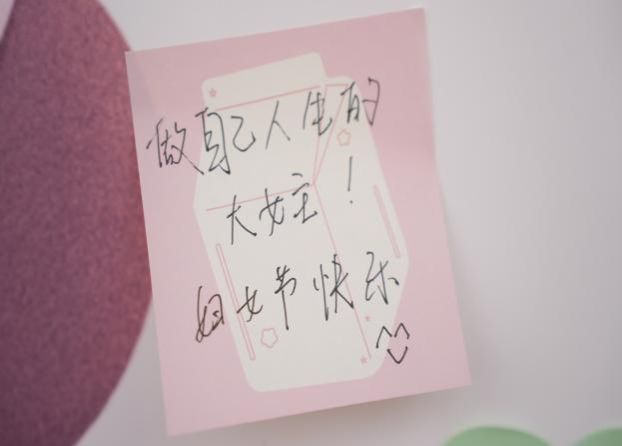 做自己人生的
大女主！
妇女节快乐